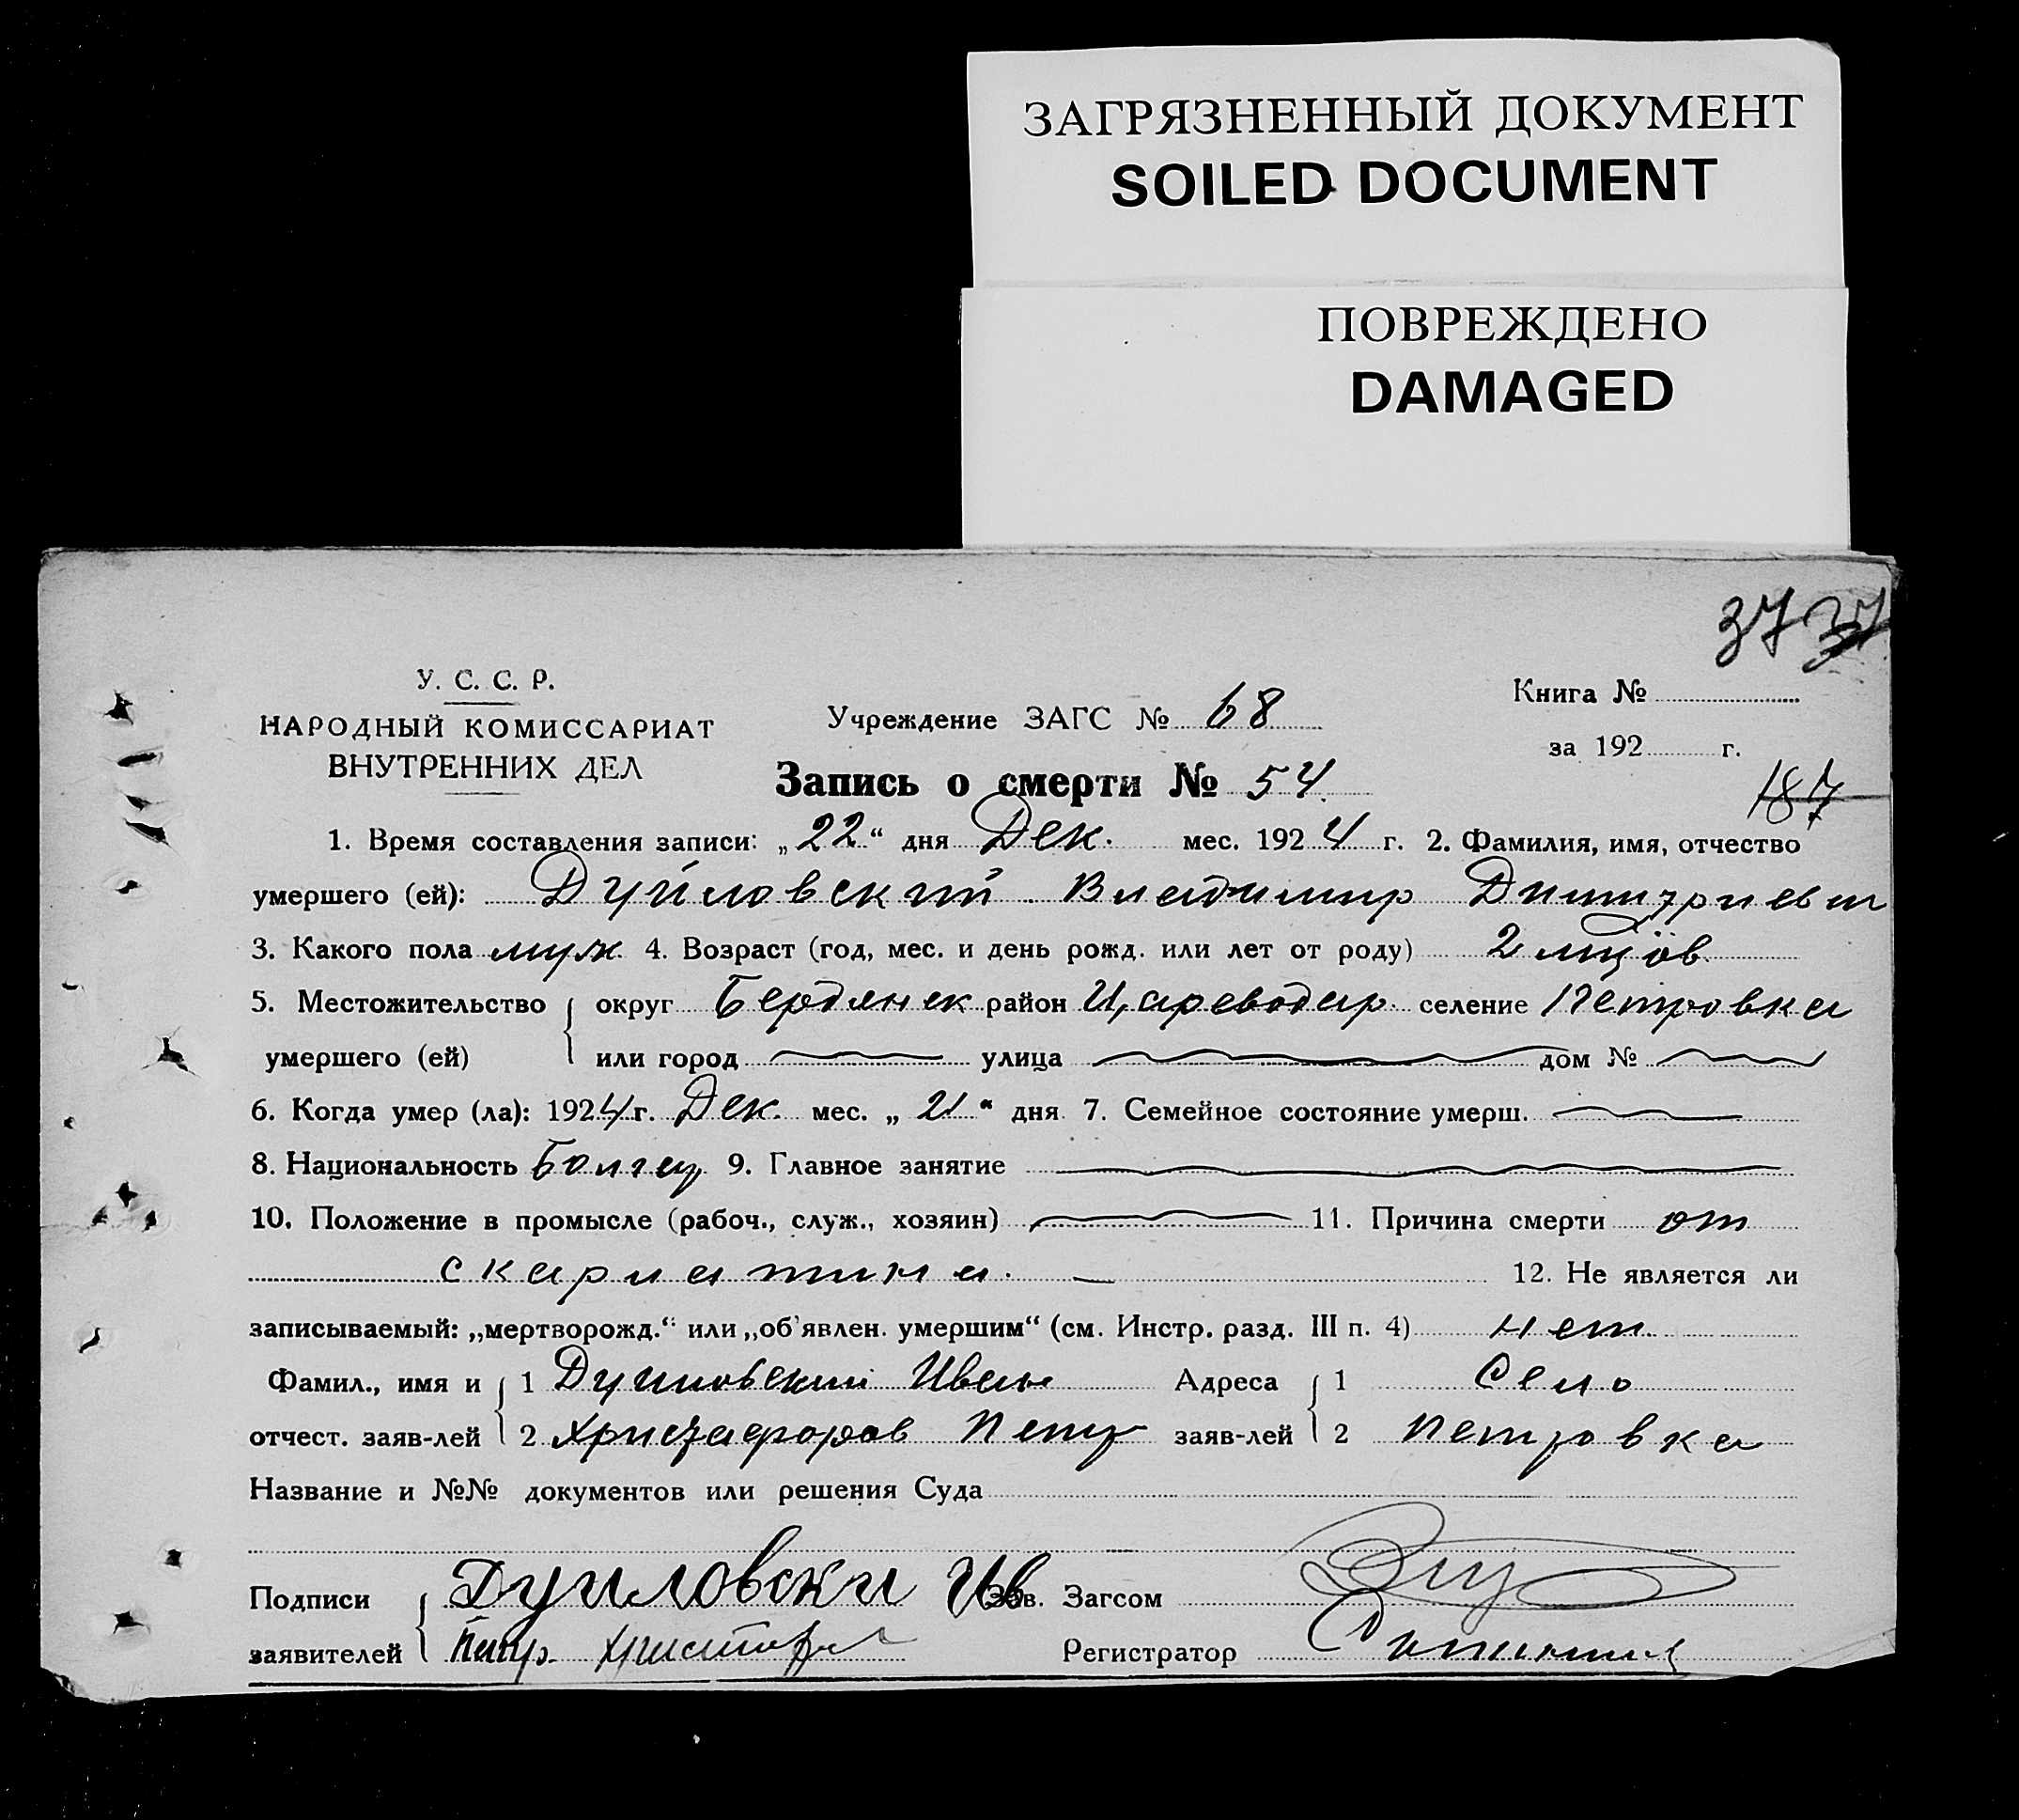 ЗАГРЯЗНЕННЫЙ ДОКУМЕНТ
SOILED DOCUMENT
ПОВРЕЖДЕНО
DAMAGED
37 37
У. С. С. Р.
НАРОДНЫЙ КОМИССАРИАТ
ВНУТРЕННИХ ДЕЛ
Учреждение ЗАГС № 68
Книга №
за 192 г.
Запись о смерти № 54.
187
1. Время составления записи: „22“ дня Дек. мес. 1924 г. 2. Фамилия, имя, отчество
умершего (ей): Дуйловский Владимир Димитриевич
3. Какого пола муж. 4. Возраст (год, мес. и день рожд. или лет от роду) 2 мцов.
5. Местожительство округ Бердянск район Цареводар. селение Петровка
умершего (ей) или город улица дом №
6. Когда умер (ла): 1924 г. Дек. мес. „21“ дня 7. Семейное состояние умерш.
8. Национальность Болгар 9. Главное занятие
10. Положение в промысле (рабоч., служ., хозяин) 11. Причина смерти от
скарлатина.
12. Не является ли
записываемый: „мертворожд.“ или „об'явлен. умершим“ (см. Инстр. разд. III п. 4) нет.
Фамил., имя и 1 Дуйловский Иван Адреса 1 Село
отчест. заяв-лей 2 Христафоров Петр заяв-лей 2 Петровка
Название и №№ документов или решения Суда
Подписи Дуиловски Ив Зав. Загсом
заявителей Петр. Регистратор